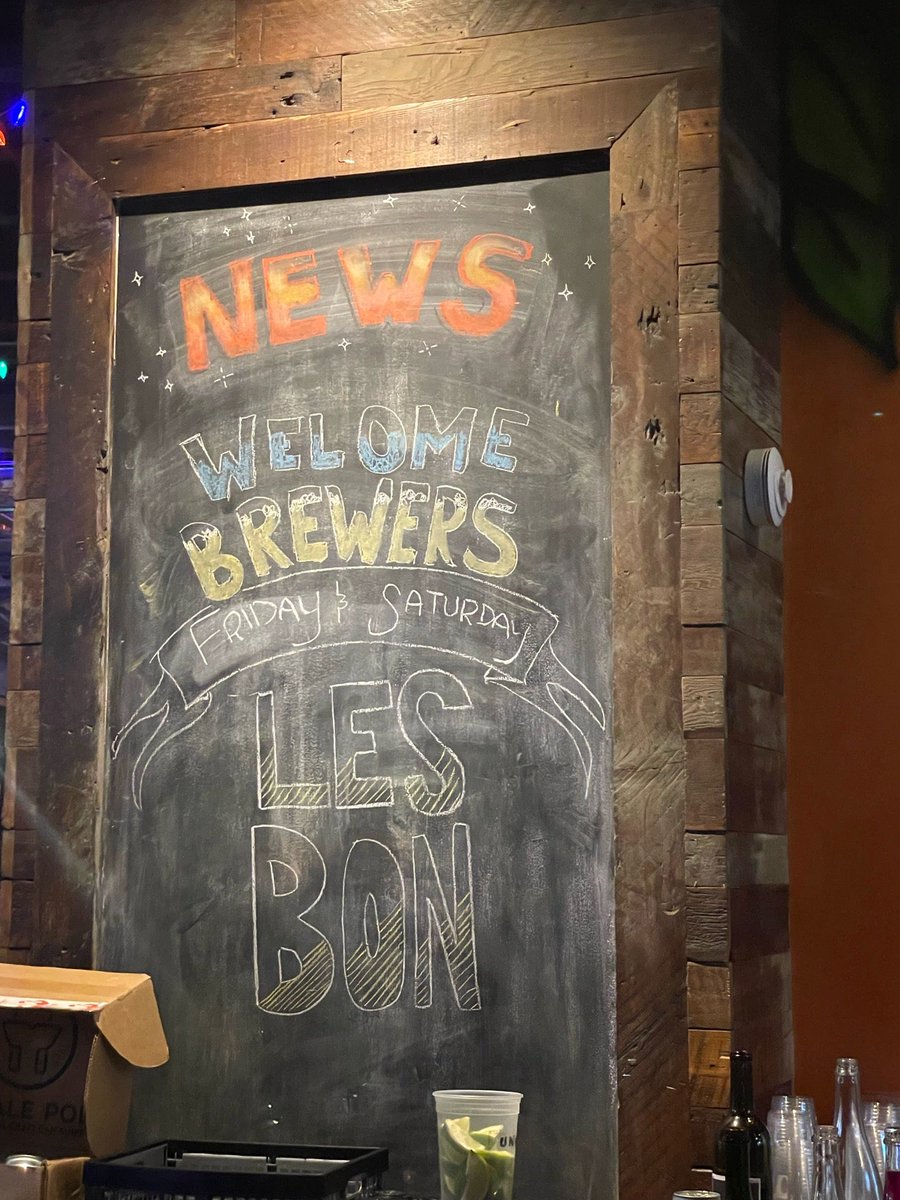 NEWS
WELOME
BREWERS
FRIDAY & SATURDAY
LES
BON
UN